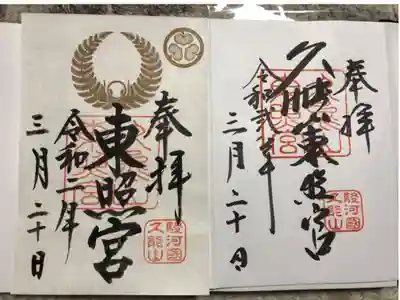 奉拝
東照宮
令和二年
三月二十日
駿河國
久能山
奉拝
久能山東照宮
令和弐年
三月二十日
駿河國
久能山